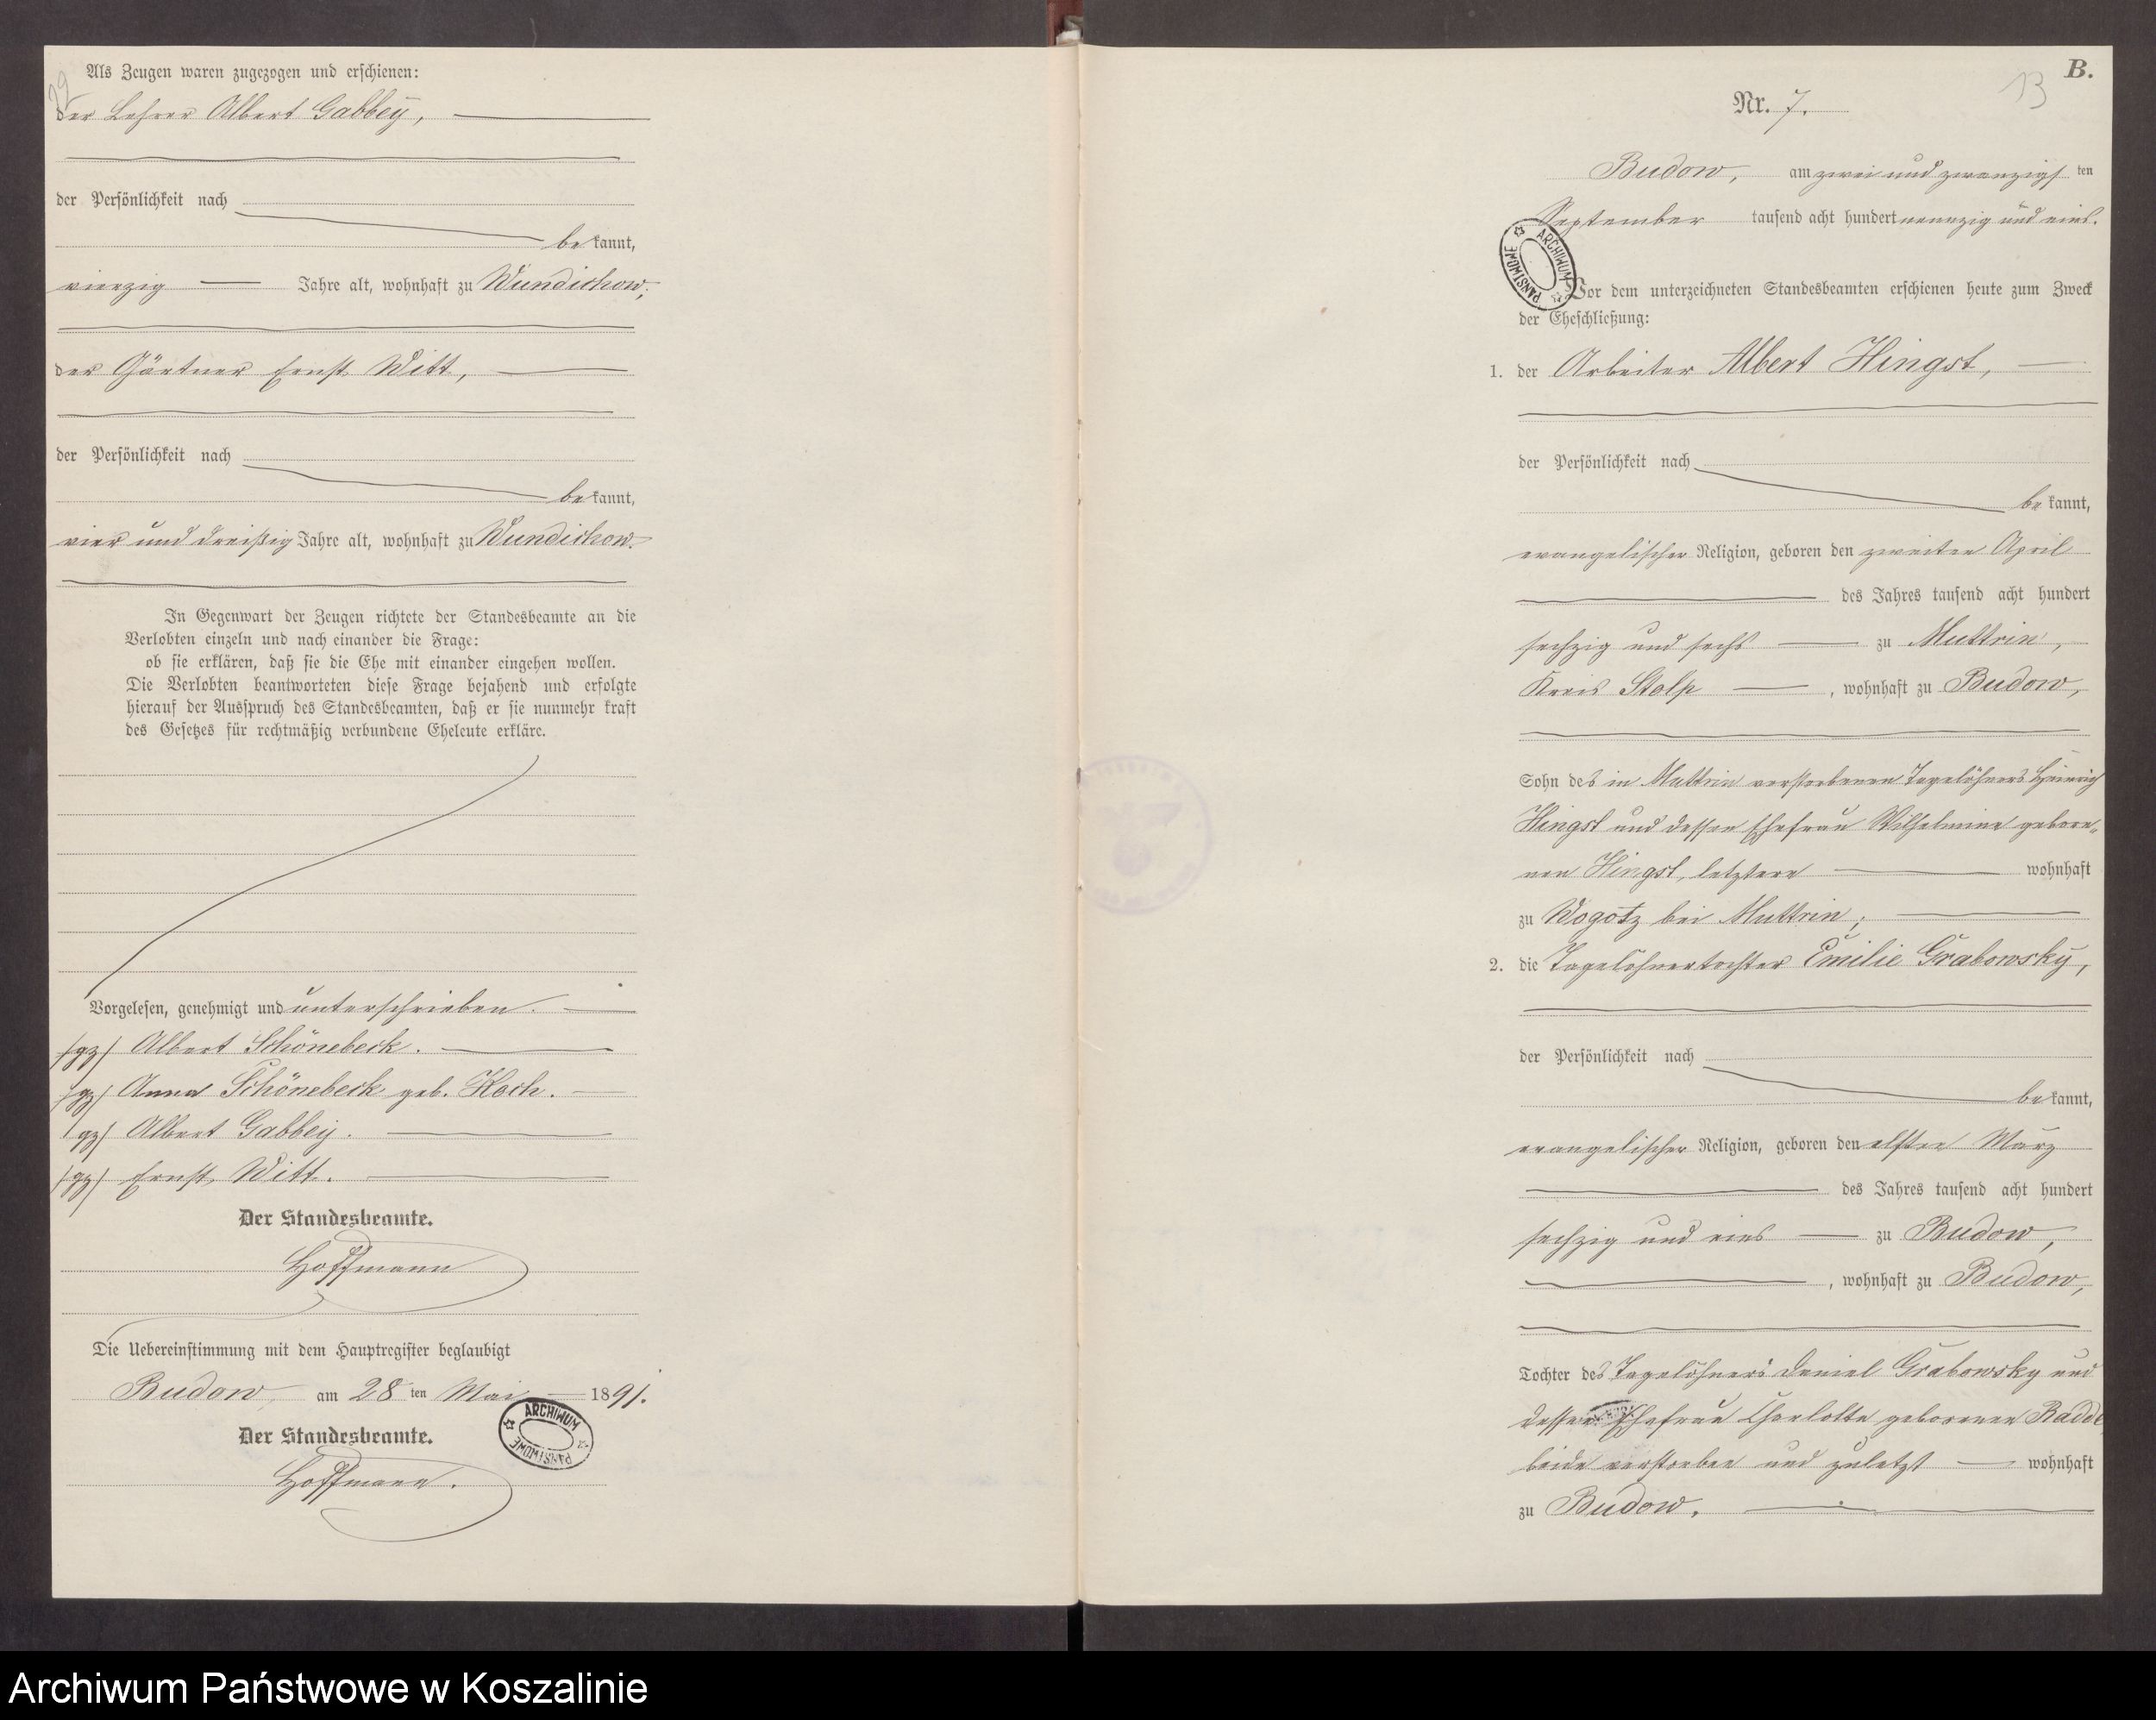 Als Zeugen waren zugezogen und erschienen:
der Lehrer Albert Gabbey,
der Persönlichkeit nach
bekannt,
vierzig Jahre alt, wohnhaft zu Wundichow;
der Gärtner Ernst Witt,
der Persönlichkeit nach
bekannt,
vier und dreißig Jahre alt, wohnhaft zu Wundichow.
In Gegenwart der Zeugen richtete der Standesbeamte an die
Verlobten einzeln und nach einander die Frage:
ob sie erklären, daß sie die Ehe mit einander eingehen wollen.
Die Verlobten beantworteten diese Frage bejahend und erfolgte
hierauf der Ausspruch des Standesbeamten, daß er sie nunmehr kraft
des Gesetzes für rechtmäßig verbundene Eheleute erkläre.
Vorgelesen, genehmigt und unterschrieben.
/gz/ Albert Schönebeck.
/gz/ Anna Schönebeck geb. Koch.
/gz/ Albert Gabbey.
/gz/ Ernst Witt.
Der Standesbeamte.
Hoffmann
Die Uebereinstimmung mit dem Hauptregister beglaubigt
Budow, am 28 ten Mai 1891.
Der Standesbeamte.
Hoffmann.
ARCHIWUM PAŃSTWOWE
B.
13
Nr. 7.
Budow, am zwei und zwanzigsten
September tausend acht hundert neunzig und eins.
ARCHIWUM PAŃSTWOWE
Vor dem unterzeichneten Standesbeamten erschienen heute zum Zweck
der Eheschließung:
1. der Arbeiter Albert Hingst,
der Persönlichkeit nach
bekannt,
evangelischer Religion, geboren den zweiten April
des Jahres tausend acht hundert
sechzig und sechs zu Muttrin,
Kreis Stolp, wohnhaft zu Budow,
Sohn des in Muttrin verstorbenen Tagelöhners Heinrich
Hingst und dessen Ehefrau Wilhelmine gebore-
nen Hingst, letztere wohnhaft
zu Wogotz bei Muttrin;
2. die Tagelöhnertochter Emilie Grabowsky,
der Persönlichkeit nach
bekannt,
evangelischer Religion, geboren den elften März
des Jahres tausend acht hundert
sechzig und eins zu Budow,
, wohnhaft zu Budow,
Tochter des Tagelöhners Daniel Grabowsky und
dessen Ehefrau Charlotte geborenen Radde,
beide verstorben und zuletzt wohnhaft
zu Budow.
Archiwum Państwowe w Koszalinie